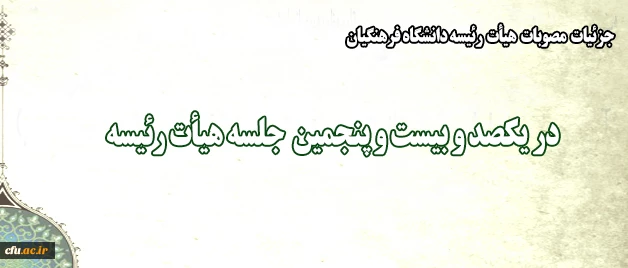 جزئیات مصوبات هیأت رئیسه دانشگاه فرهنگیان
در یکصد و بیست و پنجمین جلسه هیأت رئیسه
cfu.ac.ir